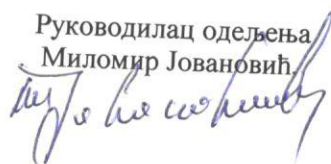 Руководилац одељења
Миломир Јовановић